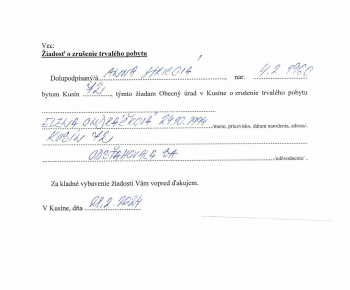 Vec:
Žiadosť o zrušenie trvalého pobytu
Dolupodpísaný/á ANNA , nar. 4.2.1960
bytom Kusín 72 , týmto žiadam Obecný úrad v Kusíne o zrušenie trvalého pobytu
ELENA ONDRÁČKOVÁ 24.10.1994 /meno, priezvisko, dátum narodenia, adresa/.
KUSÍN 72
ODSŤAHOVALA SA /odôvodnenie/ .
Za kladné vybavenie žiadosti Vám vopred ďakujem.
V Kusíne, dňa 28.2.2024